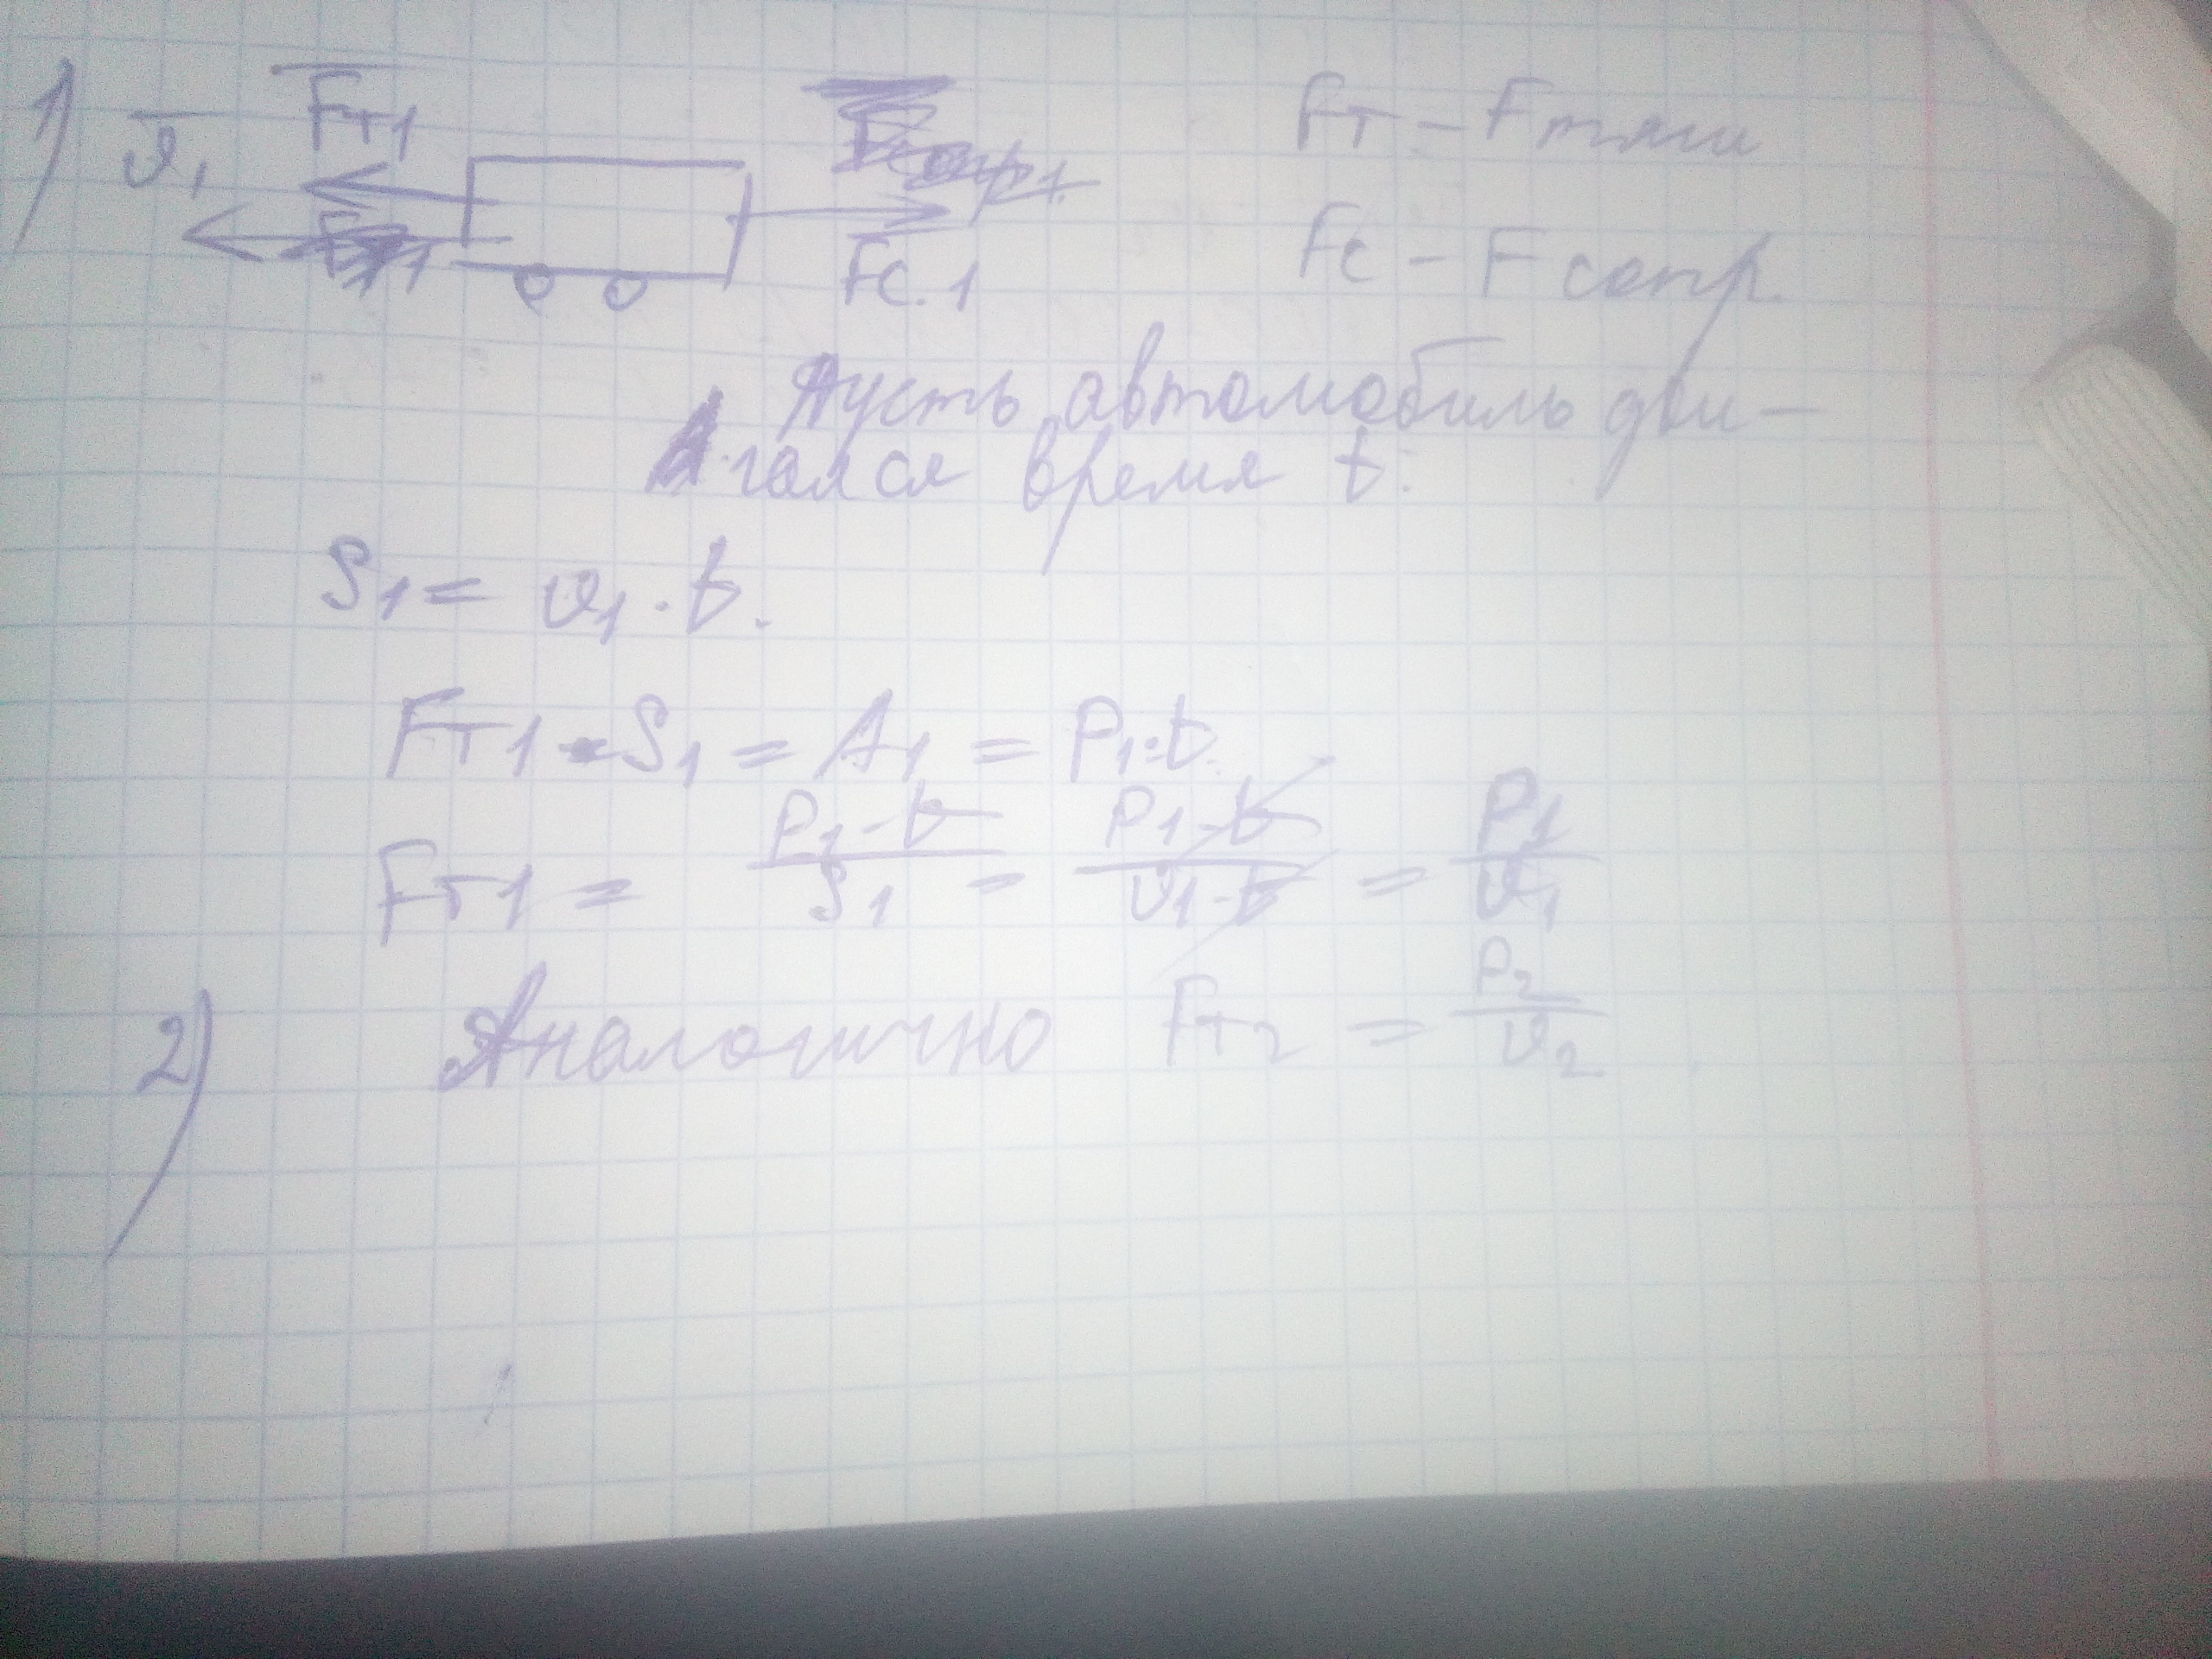 1)
v̄₁
F̄т1
Fс.1
Fт – Fтяги
Fс – Fсопр.
Пусть автомобиль дви-
гался время t.
S₁ = v₁ · t.
Fт1 · S₁ = A₁ = P₁ · t.
Fт1 = P₁·t / S₁ = P₁·t / v₁·t = P₁ / v₁
2) Аналогично Fт2 = P₂ / v₂